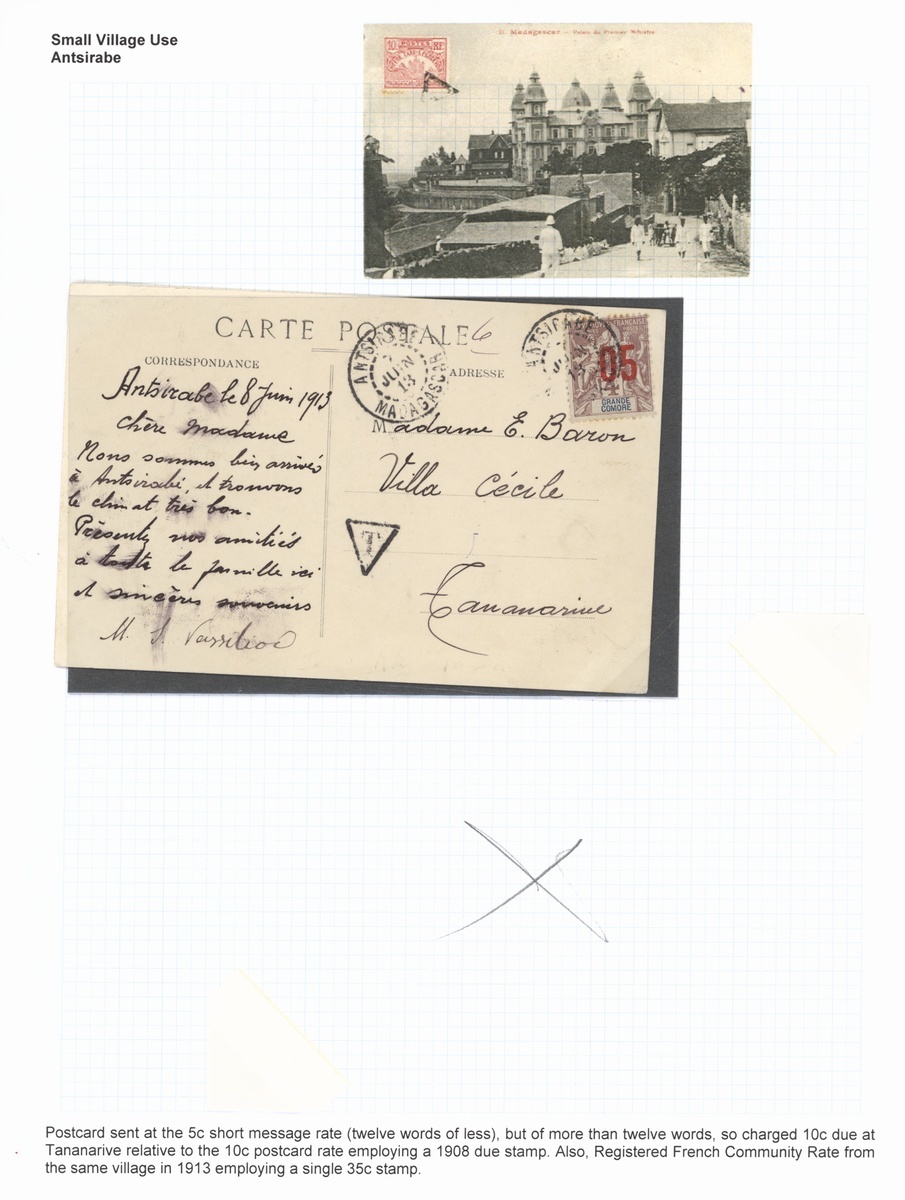 Small Village Use
Antsirabe
Madagascar — Palais du Premier Ministre
POSTES
10
CARTE POSTALE 6
CORRESPONDANCE
ADRESSE
ANTSIRABE
JUIN
13
MADAGASCAR
ANTSIRABE
JUIN
13
05
GRANDE
COMORE
Antsirabe le 8 Juin 1913
Chère Madame
Nous sommes bien arrivés
à Antsirabé, et trouvons
le climat très bon.
Présentez nos amitiés
à toute la famille ici
et sincères souvenirs
M. S.
Madame E. Baron
Villa Cécile
Tananarive
T
Postcard sent at the 5c short message rate (twelve words of less), but of more than twelve words, so charged 10c due at
Tananarive relative to the 10c postcard rate employing a 1908 due stamp. Also, Registered French Community Rate from
the same village in 1913 employing a single 35c stamp.